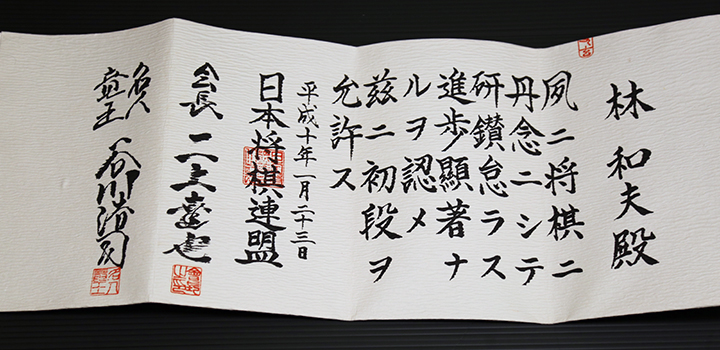 林 和夫殿
夙ニ将棋ニ
丹念ニシテ
研鑚怠ラス
進歩顕著ナ
ルヲ認メ
茲ニ初段ヲ
允許ス
平成十年一月二十三日
日本将棋連盟
会長 二上達也
名人
竜王 谷川浩司